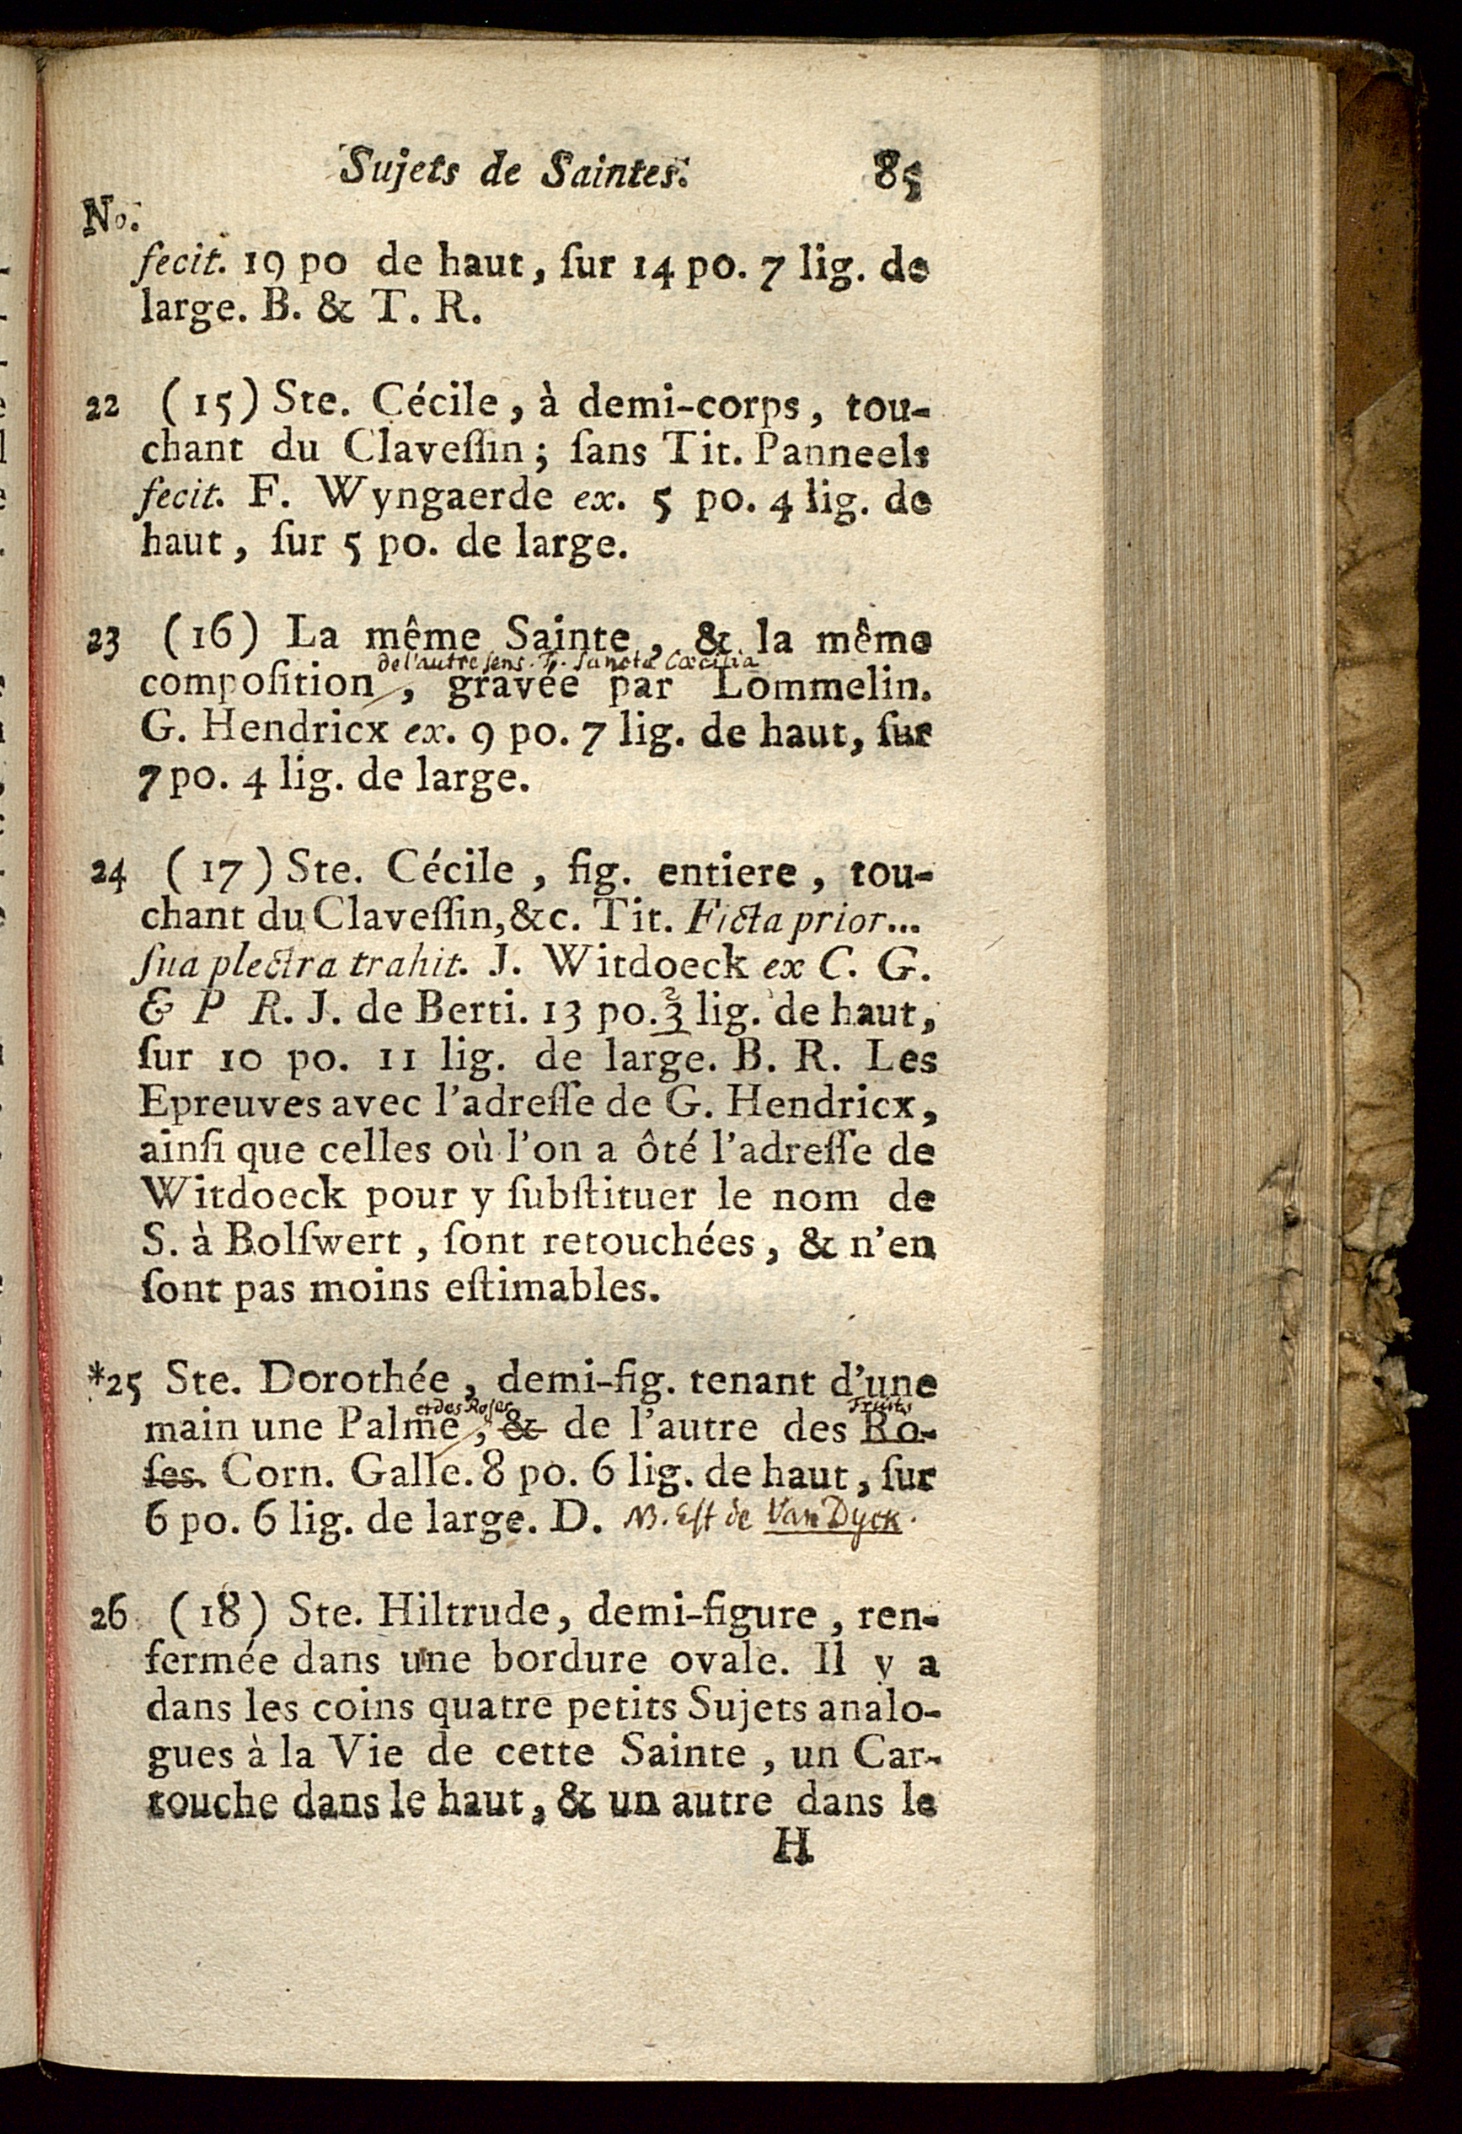 Sujets de Saintes. 85
No.
fecit. 19 po de haut, ſur 14 po. 7 lig. de
large. B. & T. R.
22 (15) Ste. Cécile, à demi-corps, tou-
chant du Claveſſin; ſans Tit. Panneels
fecit. F. Wyngaerde ex. 5 po. 4 lig. de
haut, ſur 5 po. de large.
23 (16) La même Sainte, & la même
de l'autre sens. T. Sancta Cæcilia
compoſition, gravée par Lommelin.
G. Hendricx ex. 9 po. 7 lig. de haut, ſur
7 po. 4 lig. de large.
24 (17) Ste. Cécile, fig. entiere, tou-
chant du Claveſſin, &c. Tit. Ficta prior...
ſua plectra trahit. J. Witdoeck ex C. G.
2
& P R. J. de Berti. 13 po. 3 lig. de haut,
ſur 10 po. 11 lig. de large. B. R. Les
Epreuves avec l'adreſſe de G. Hendricx,
ainſi que celles où l'on a ôté l'adreſſe de
Witdoeck pour y ſubſtituer le nom de
S. à Bolſwert, ſont retouchées, & n'en
ſont pas moins eſtimables.
*25 Ste. Dorothée, demi-fig. tenant d'une
et des Roses Fruits
main une Palme, & de l'autre des Ro-
ſes. Corn. Galle. 8 po. 6 lig. de haut, ſur
6 po. 6 lig. de large. D. NB. Est de Van Dyck.
26 (18) Ste. Hiltrude, demi-figure, ren-
fermée dans une bordure ovale. Il y a
dans les coins quatre petits Sujets analo-
gues à la Vie de cette Sainte, un Car-
touche dans le haut, & un autre dans le
H